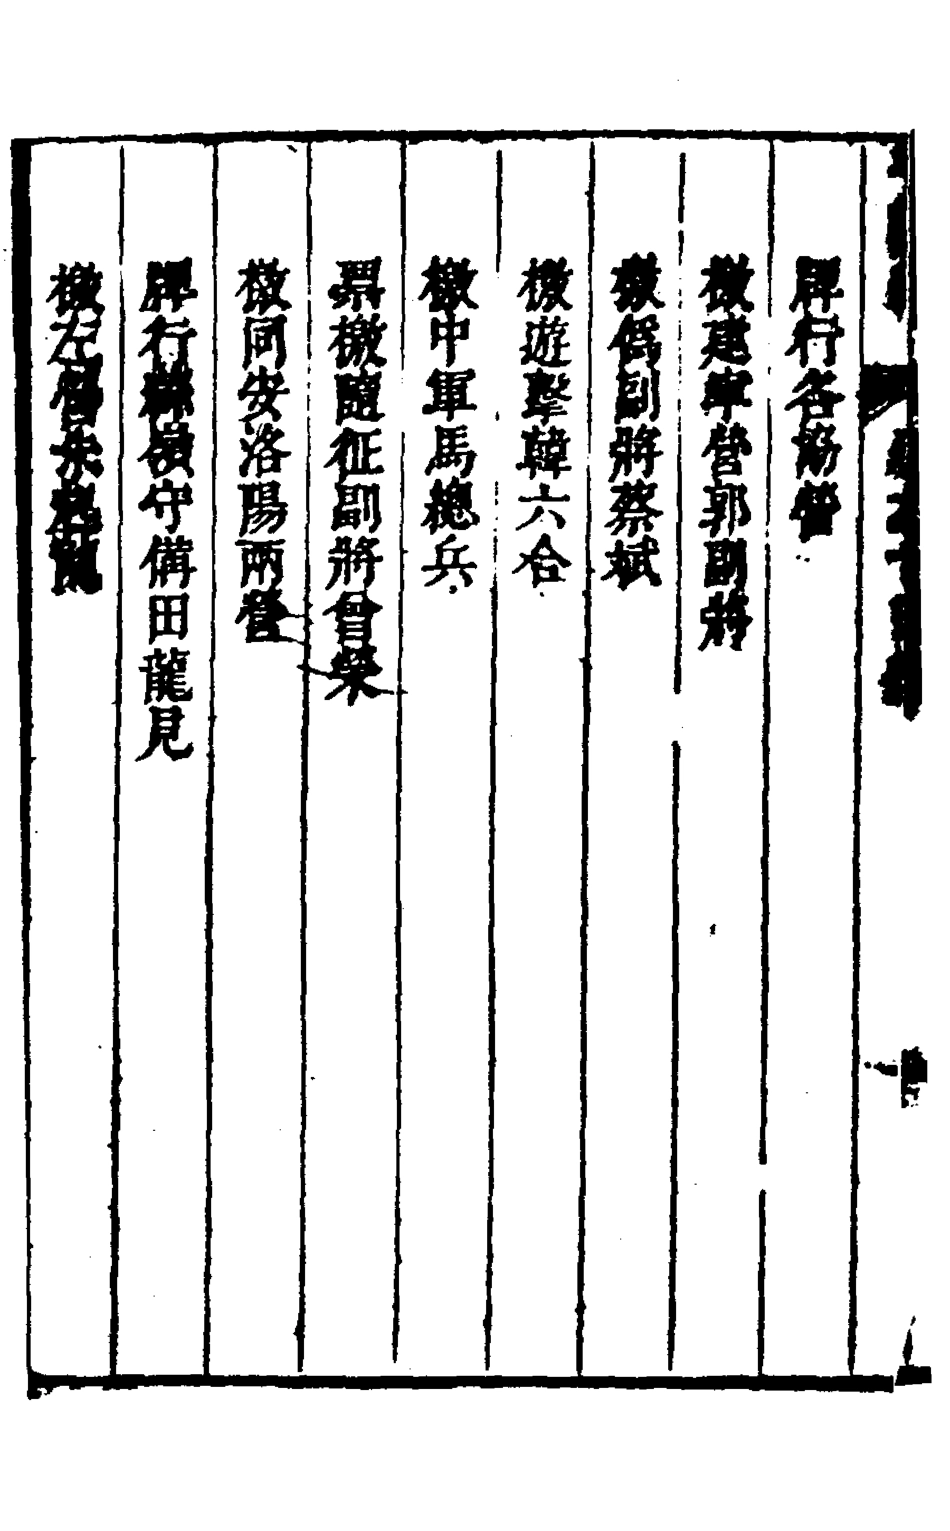 牌行各協營
檄建寧營郭副將
檄僞副將蔡斌
檄遊擊韓六合
檄中軍馬總兵
票檄隨征副將曾榮
檄同安洛陽兩營
牌行 守備田龍見
檄左營朱